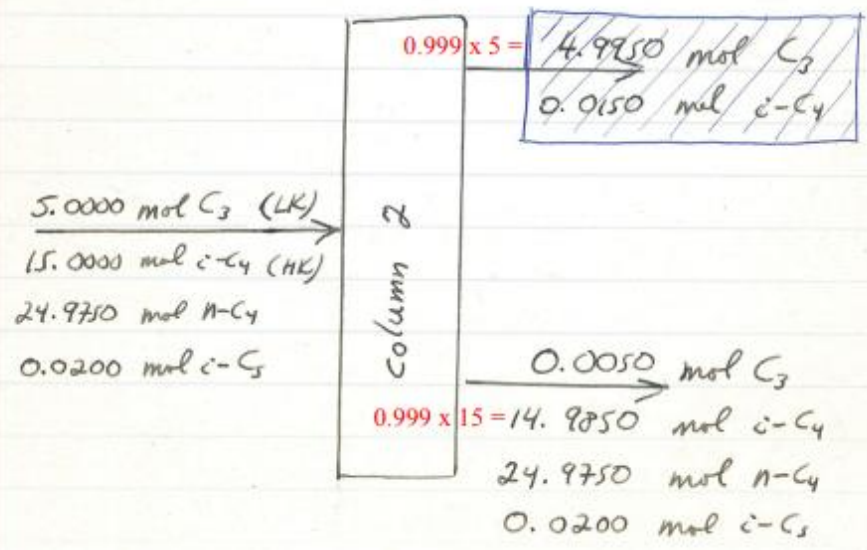 0.999 x 5 = 4.9950 mol C3
0.0150 mol i-C4
5.0000 mol C3 (LK)
15.0000 mol i-C4 (HK)
24.9750 mol n-C4
0.0200 mol i-C5
Column 2
0.0050 mol C3
0.999 x 15 = 14.9850 mol i-C4
24.9750 mol n-C4
0.0200 mol i-C5